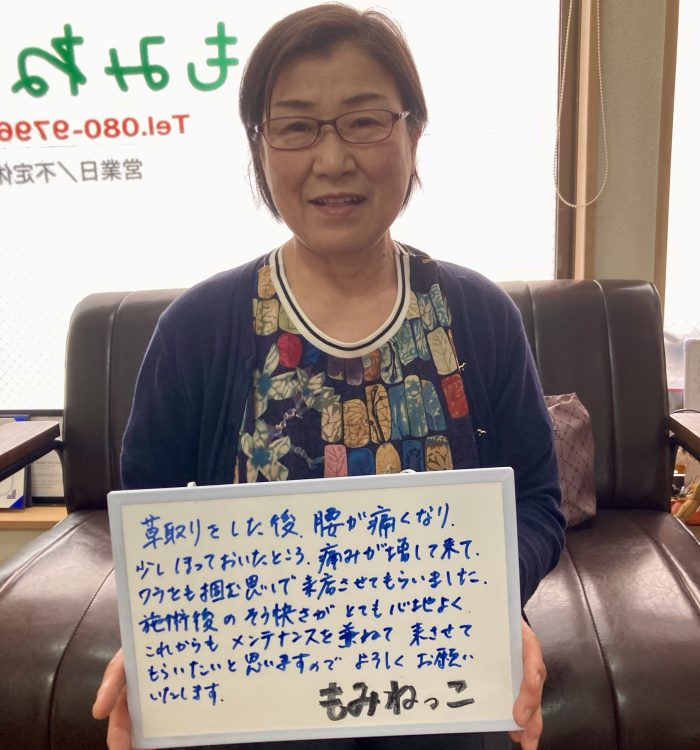 もみね
Tel.080-9796
営業日/不定休
草取りをした後、腰が痛くなり、
少しほっておいたところ、痛みが増して来て、
ワラをも掴む思いで来店させてもらいました。
施術後のそう快さがとても心地よく、
これからもメンテナンスを兼ねて来させて
もらいたいと思いますので よろしくお願い
いたします。
もみねっこ